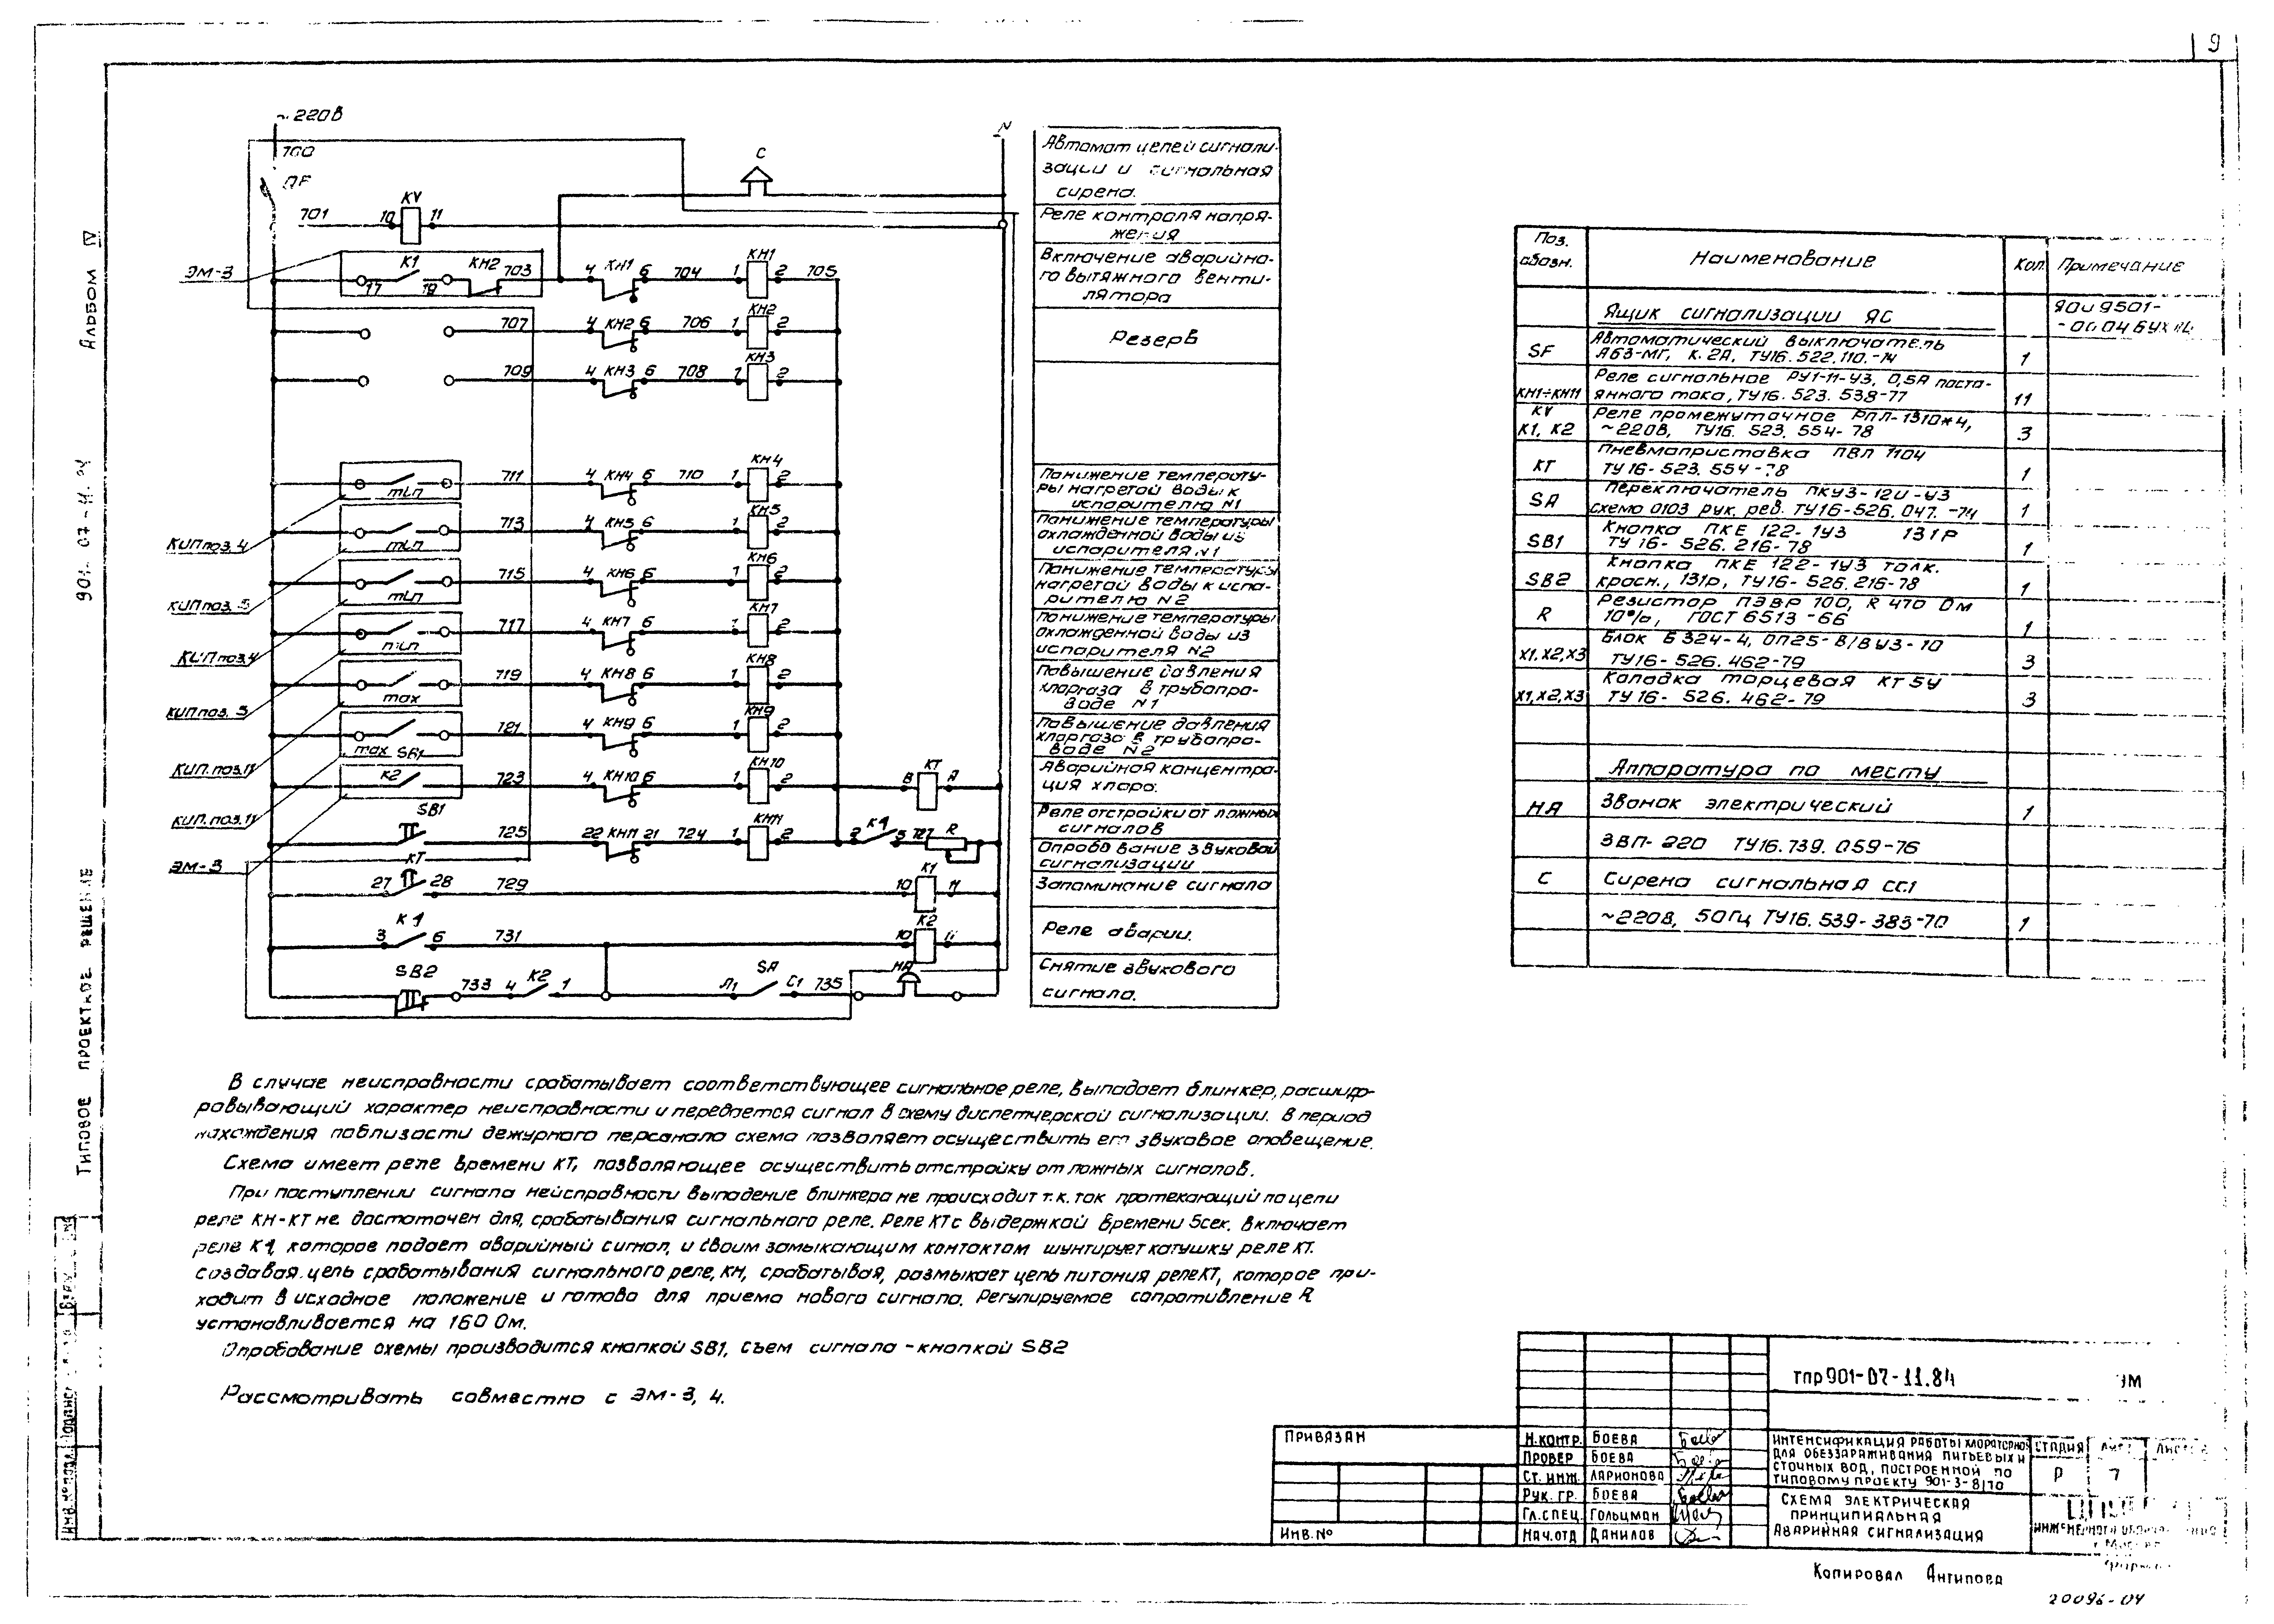 9
~220В
N
700
С
701
10
KV
11
ЭМ-3
К1
КН2
703
17
19
4 КН1 6
704
1
КН1
2
705
707
4 КН2 6
706
1
КН2
2
709
4 КН3 6
708
1
КН3
2
min
711
4 КН4 6
710
1
КН4
2
min
713
4 КН5 6
1
КН5
2
КИП поз. 4
min
715
4 КН6 6
1
КН6
2
КИП поз. 5
min
717
4 КН7 6
1
КН7
2
КИП поз. 4
max
719
4 КН8 6
1
КН8
2
КИП поз. 5
max
SB1
721
4 КН9 6
1
КН9
2
КИП. поз. 11
К2
723
4 КН10 6
1
КН10
2
В
КТ
А
КИП. поз. 11
SB1
725
22 КН11 21
724
1
КН11
2
2
К1
5 727
R
ЭМ-3
КТ
27
28
729
10
К1
11
К1
3
6
731
10
К2
11
SB2
733 4
К2
1
Л1
SA
С1 735
НА
Автомат цепей сигнали-
зации и сигнальная
сирена.
Реле контроля напря-
жения
Включение аварийно-
го вытяжного венти-
лятора
Резерв
Понижение температу-
ры нагретой воды к
испарителю N1
Понижение температуры
охлажденной воды из
испарителя N1
Понижение температуры
нагретой воды к испа-
рителю N2
Понижение температуры
охлажденной воды из
испарителя N2
Повышение давления
хлоргаза в трубопро-
воде N1
Повышение давления
хлоргаза в трубопро-
воде N2
Аварийная концентра-
ция хлора.
Реле отстройки от ложных
сигналов
Опробование звуковой
сигнализации
Запоминание сигнала
Реле аварии.
Снятие звукового
сигнала.
Поз. обозн.
Наименование
Кол.
Примечание
Ящик сигнализации ЯС
ЯОУ 9501-
SF
Автоматический выключатель
А63-МГ, к. 2А, ТУ16. 522. 110.-74
1
КН1÷КН11
Реле сигнальное РУ1-11-У3, 0,5А посто-
янного тока, ТУ16. 523. 538-77
11
KV
К1, К2
Реле промежуточное РПЛ-1310*4,
~220В, ТУ16. 523. 554-78
3
КТ
Пневмоприставка ПВЛ 1104
ТУ16-523. 554-78
1
SA
Переключатель ПКУ3-12И-У3
схема 0103 рук. рев. ТУ16-526. 047. -74
1
SB1
Кнопка ПКЕ 122-1У3 131Р
ТУ 16- 526. 216-78
1
SB2
Кнопка ПКЕ 122-1У3 толк.
красн., 131р, ТУ16-526. 216-78
1
R
Резистор ПЭВР 100, R 470 Ом
10%, ГОСТ 6513-66
1
X1, X2, X3
Блок Б324-4, 0П25-В/ВУ3-10
ТУ16-526. 462-79
3
X1, X2, X3
Колодка торцевая КТ5У
ТУ 16- 526. 462-79
3
Аппаратура по месту
НА
Звонок электрический
1
ЗВП-220 ТУ16. 739. 059-76
С
Сирена сигнальная СС1
~220В, 50Гц ТУ16. 539-383-70
1
В случае неисправности срабатывает соответствующее сигнальное реле, выпадает блинкер, расшиф-
ровывающий характер неисправности и передается сигнал в схему диспетчерской сигнализации. В период
нахождения поблизости дежурного персонала схема позволяет осуществить его звуковое оповещение.
Схема имеет реле времени КТ, позволяющее осуществить отстройку от ложных сигналов.
При поступлении сигнала неисправности выпадение блинкера не происходит т.к. ток протекающий по цепи
реле КН-КТ не достаточен для срабатывания сигнального реле. Реле КТ с выдержкой времени 5сек. включает
реле К1, которое подает аварийный сигнал, и своим замыкающим контактом шунтирует катушку реле КТ.
создавая цепь срабатывания сигнального реле, КН, срабатывая, размыкает цепь питания реле КТ, которое при-
ходит в исходное положение и готово для приема нового сигнала. Регулируемое сопротивление R
устанавливается на 160 Ом.
Опробование схемы производится кнопкой SB1, съем сигнала - кнопкой SB2
Рассматривать совместно с ЭМ-3, 4.
Альбом IV
Типовое проектное решение
Инв. № подл.
Привязан
Инв. №
тпр 901-07-11.84
ЭМ
Н.контр. Боева
Провер Боева
Ст. инж. Ларионова
Рук. гр. Боева
Гл. спец. Гольцман
Нач. отд Данилов
Интенсификация работы хлораторной
для обеззараживания питьевых и
сточных вод, построенной по
типовому проекту 901-3-8/70
Стадия
Лист
Р
7
Схема электрическая
принципиальная
Аварийная сигнализация
Копировал Антипова
20096-04